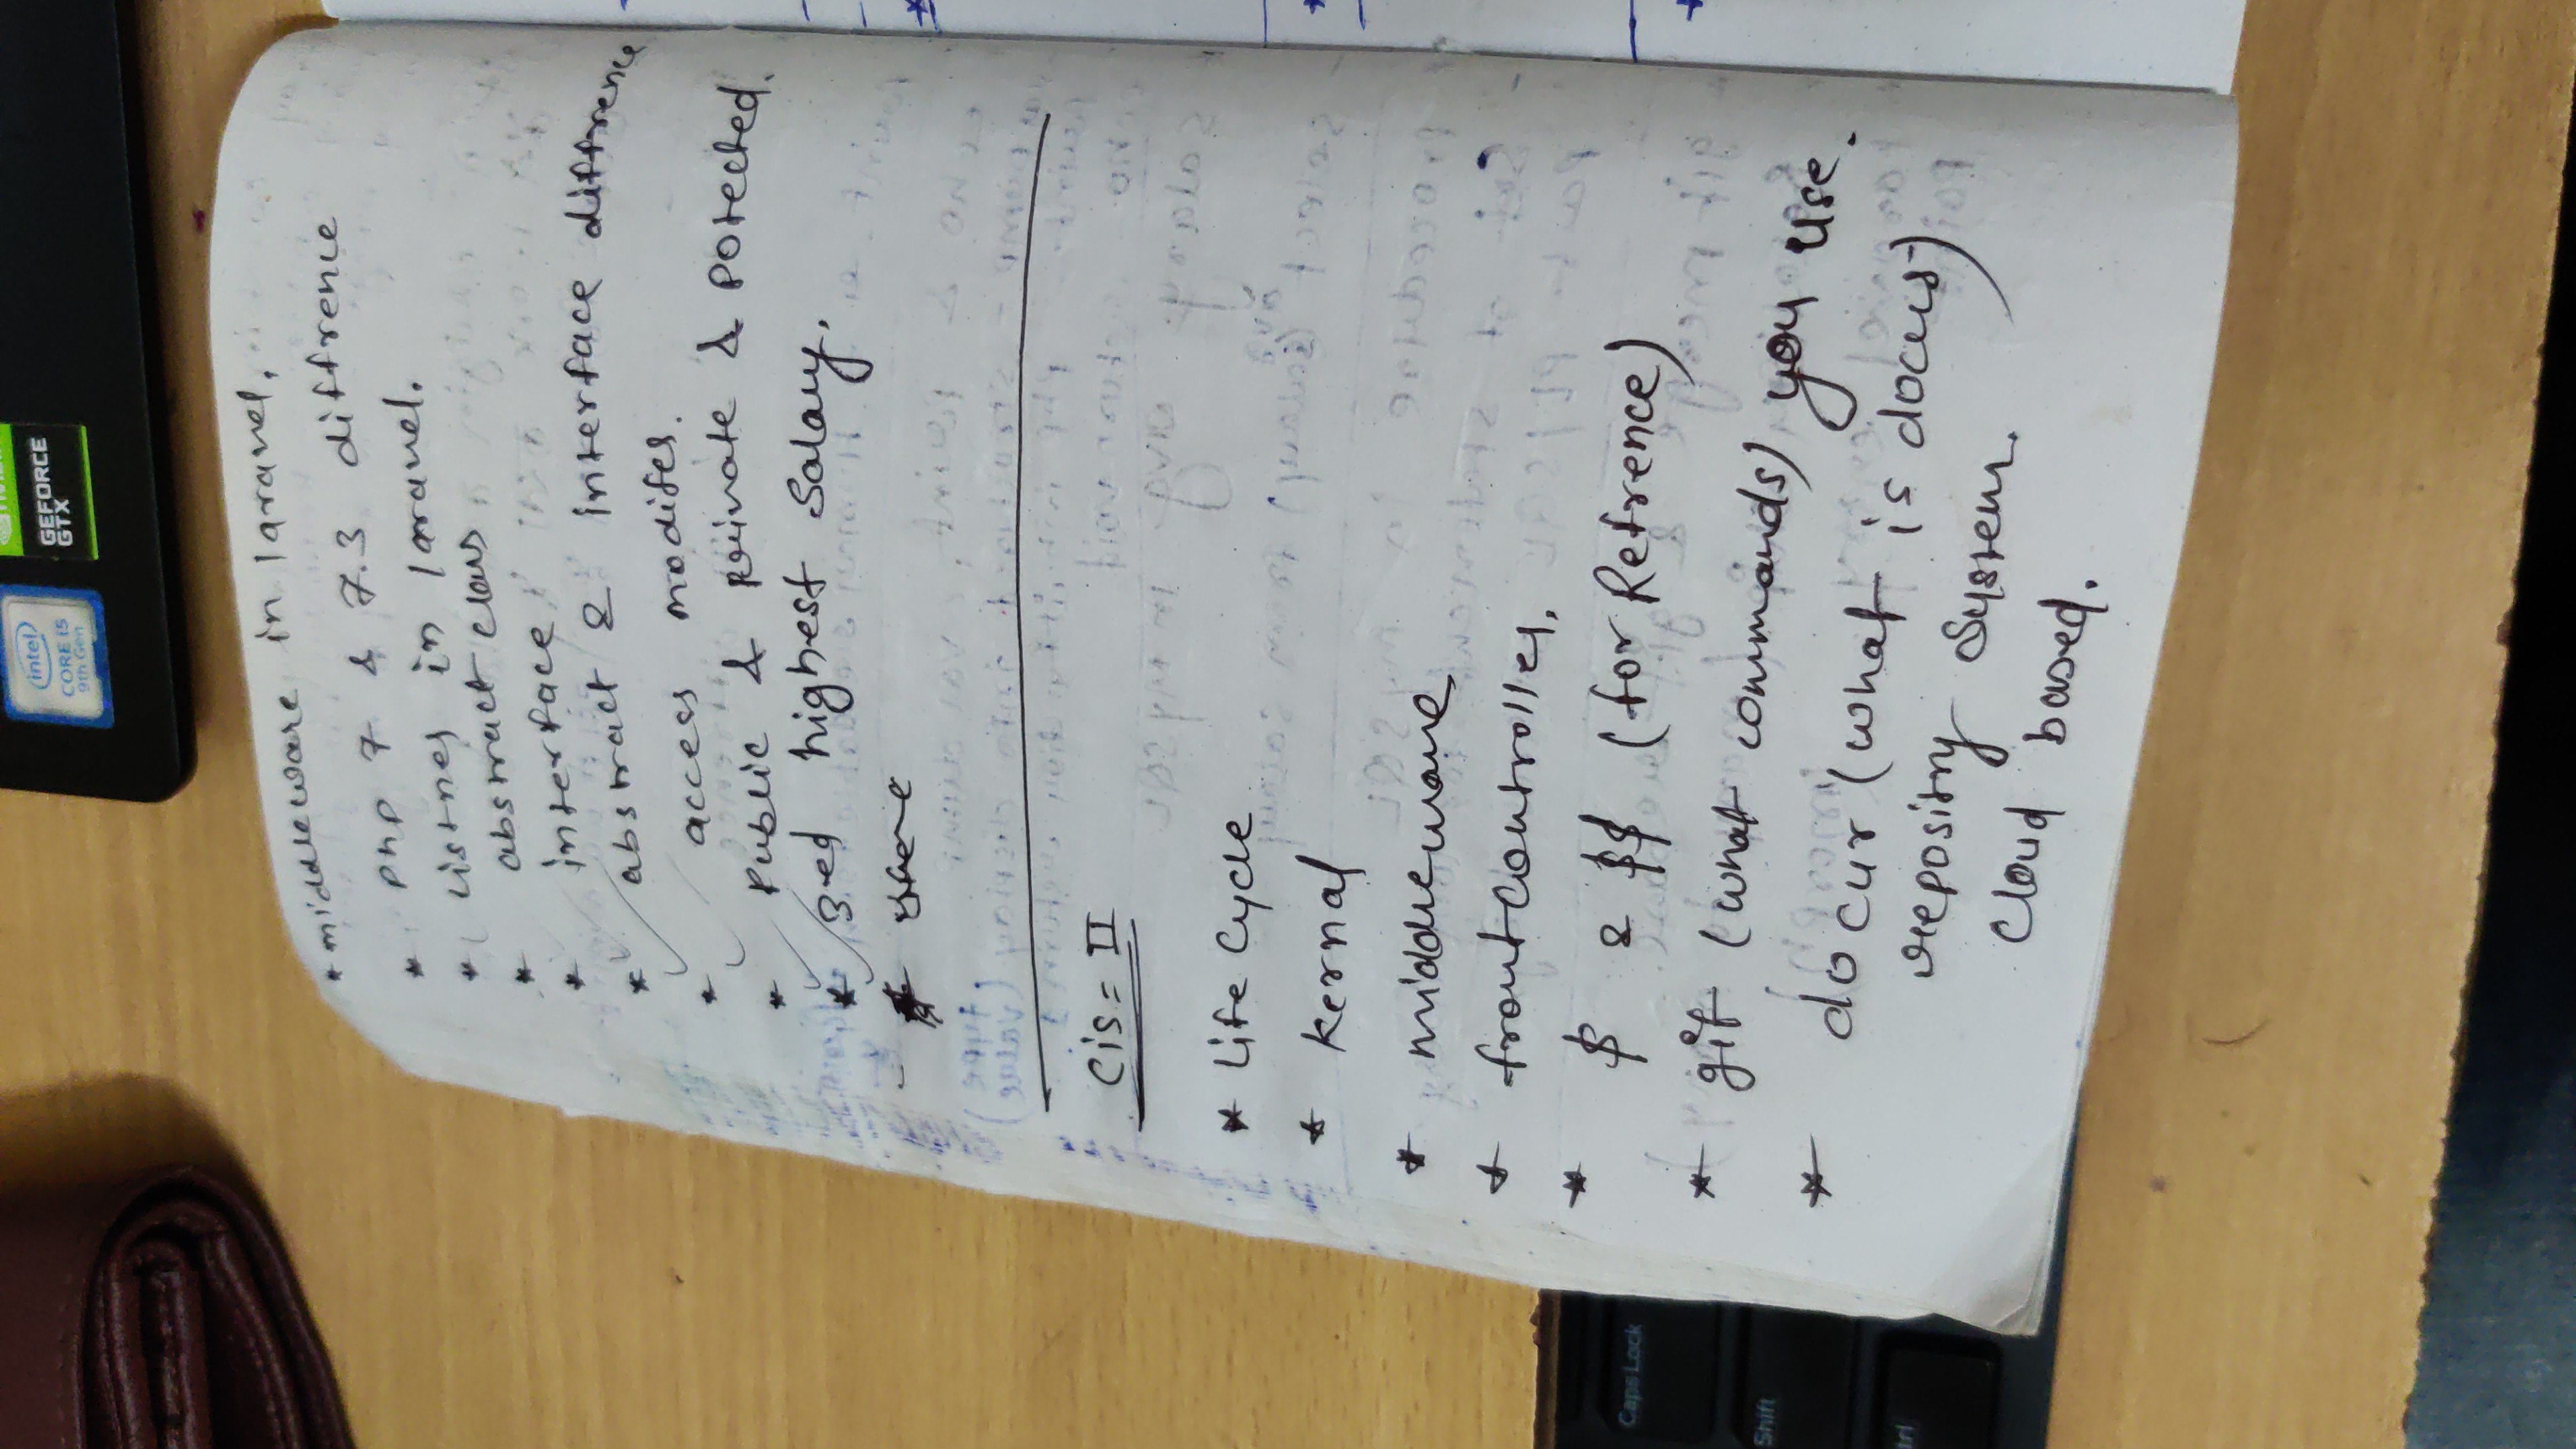 intel
CORE i5
9th Gen
NVIDIA
GEFORCE
GTX
* middleware in laravel.
* php 7 & 7.3 diffrence
* Listnes in laravel.
* abstract class
* interface
* abstract & interface diffrence
* access modifes.
* Public & private & Potected.
* 3rd highest Salary.
Cis = II
* Life Cycle
* Kernal
* middleware
* frontController.
* $ & $$ (for Refrence)
* git (what commands) you use.
* docur (what is docur)
repositry System.
Cloud based.
Caps Lock
Shift
trl